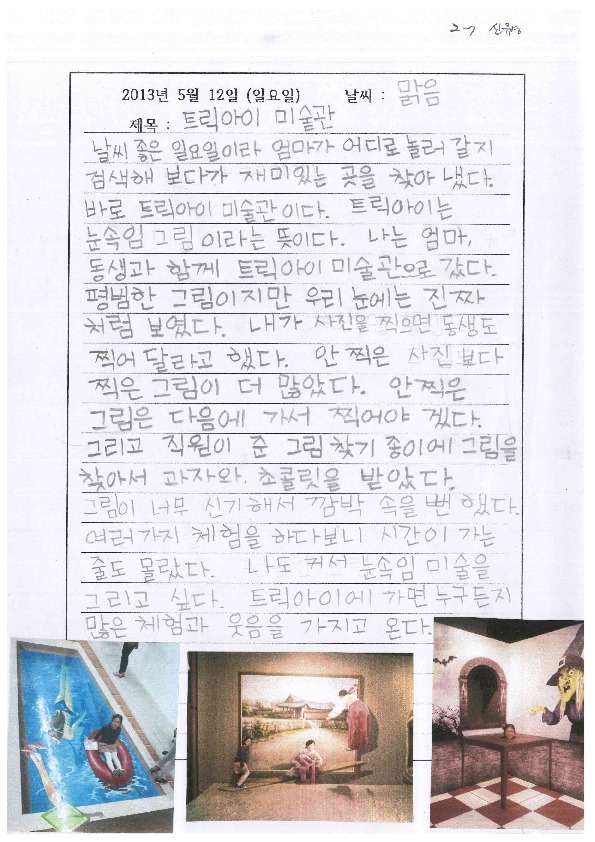 2-7
2013년 5월 12일 (일요일) 날씨 : 맑음
제목 : 트릭아이 미술관
날씨 좋은 일요일이라 엄마가 어디로 놀러 갈지
검색해 보다가 재미있는 곳을 찾아 냈다.
바로 트릭아이 미술관이다. 트릭아이는
눈속임 그림 이라는 뜻이다. 나는 엄마,
동생과 함께 트릭아이 미술관으로 갔다.
평범한 그림이지만 우리 눈에는 진짜
처럼 보였다. 내가 사진을 찍으면 동생도
찍어 달라고 했다. 안 찍은 사집 보다
찍은 그림이 더 많았다. 안 찍은
그림은 다음에 가서 찍어야 겠다.
그리고 직원이 준 그림 찾기 종이에 그림을
찾아서 과자와 초콜릿을 받았다.
그림이 너무 신기해서 깜박 속을 뻔 했다.
여러가지 체험을 하다보니 시간이 가는
줄도 몰랐다. 나도 커서 눈속임 미술을
그리고 싶다. 트릭아이에 가면 누구든지
많은 체험과 웃음을 가지고 온다.